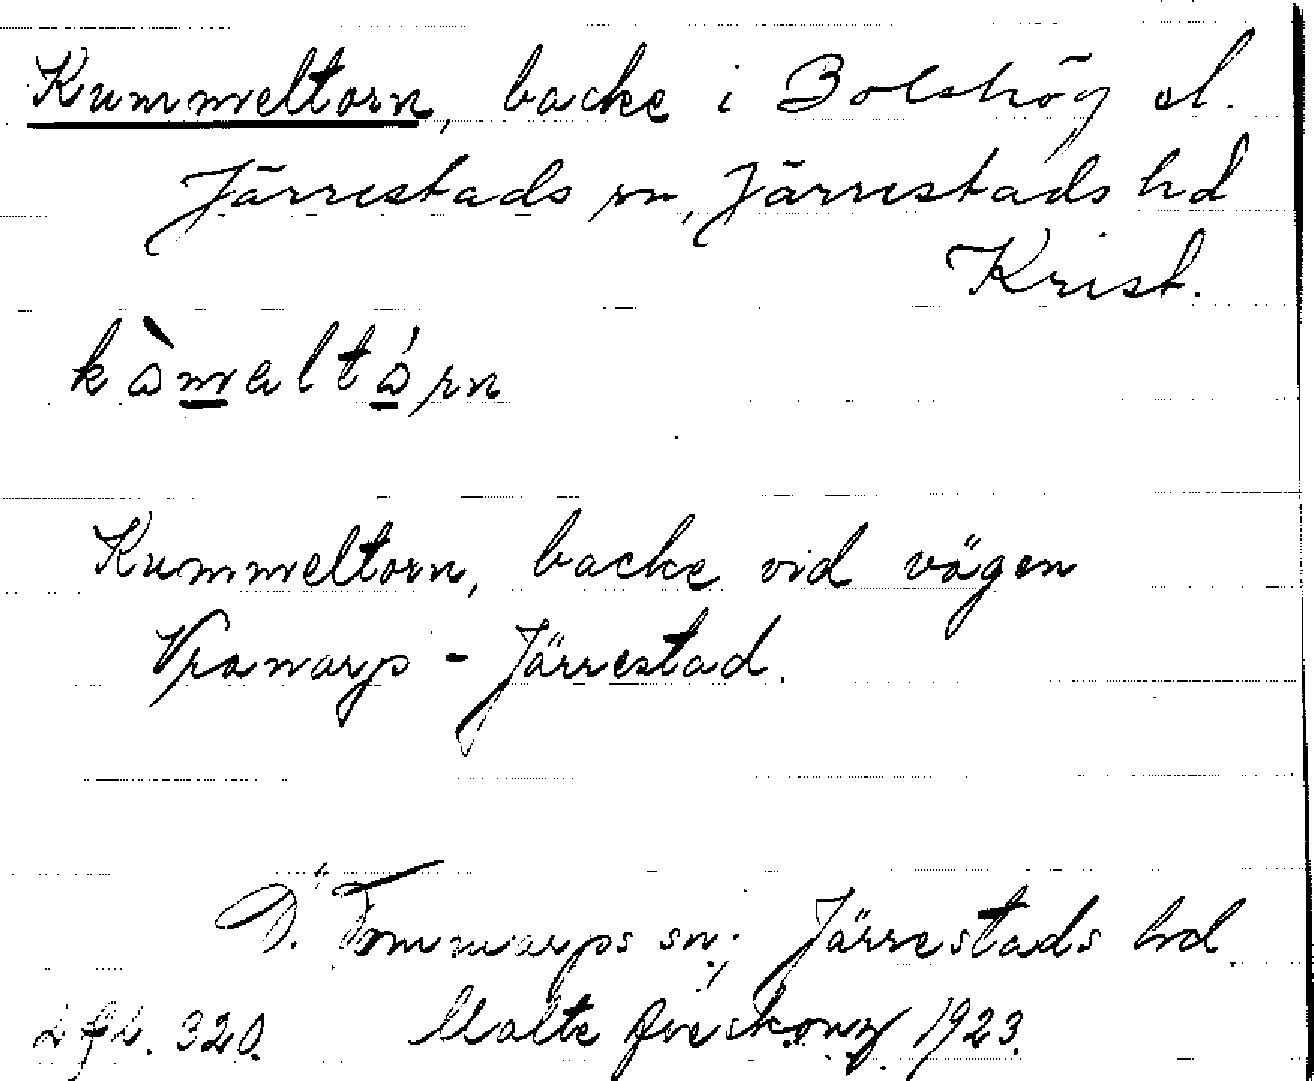 Kummeltorn, backe i Bolshög el.
Järrestads sn, Järrestads hd
Krist.
kòmaltórn
Kummeltorn, backe vid vägen
Vranarp - Järrestad.
Ö. Tommarps sn; Järrestads hd.
320. Malte 1923.